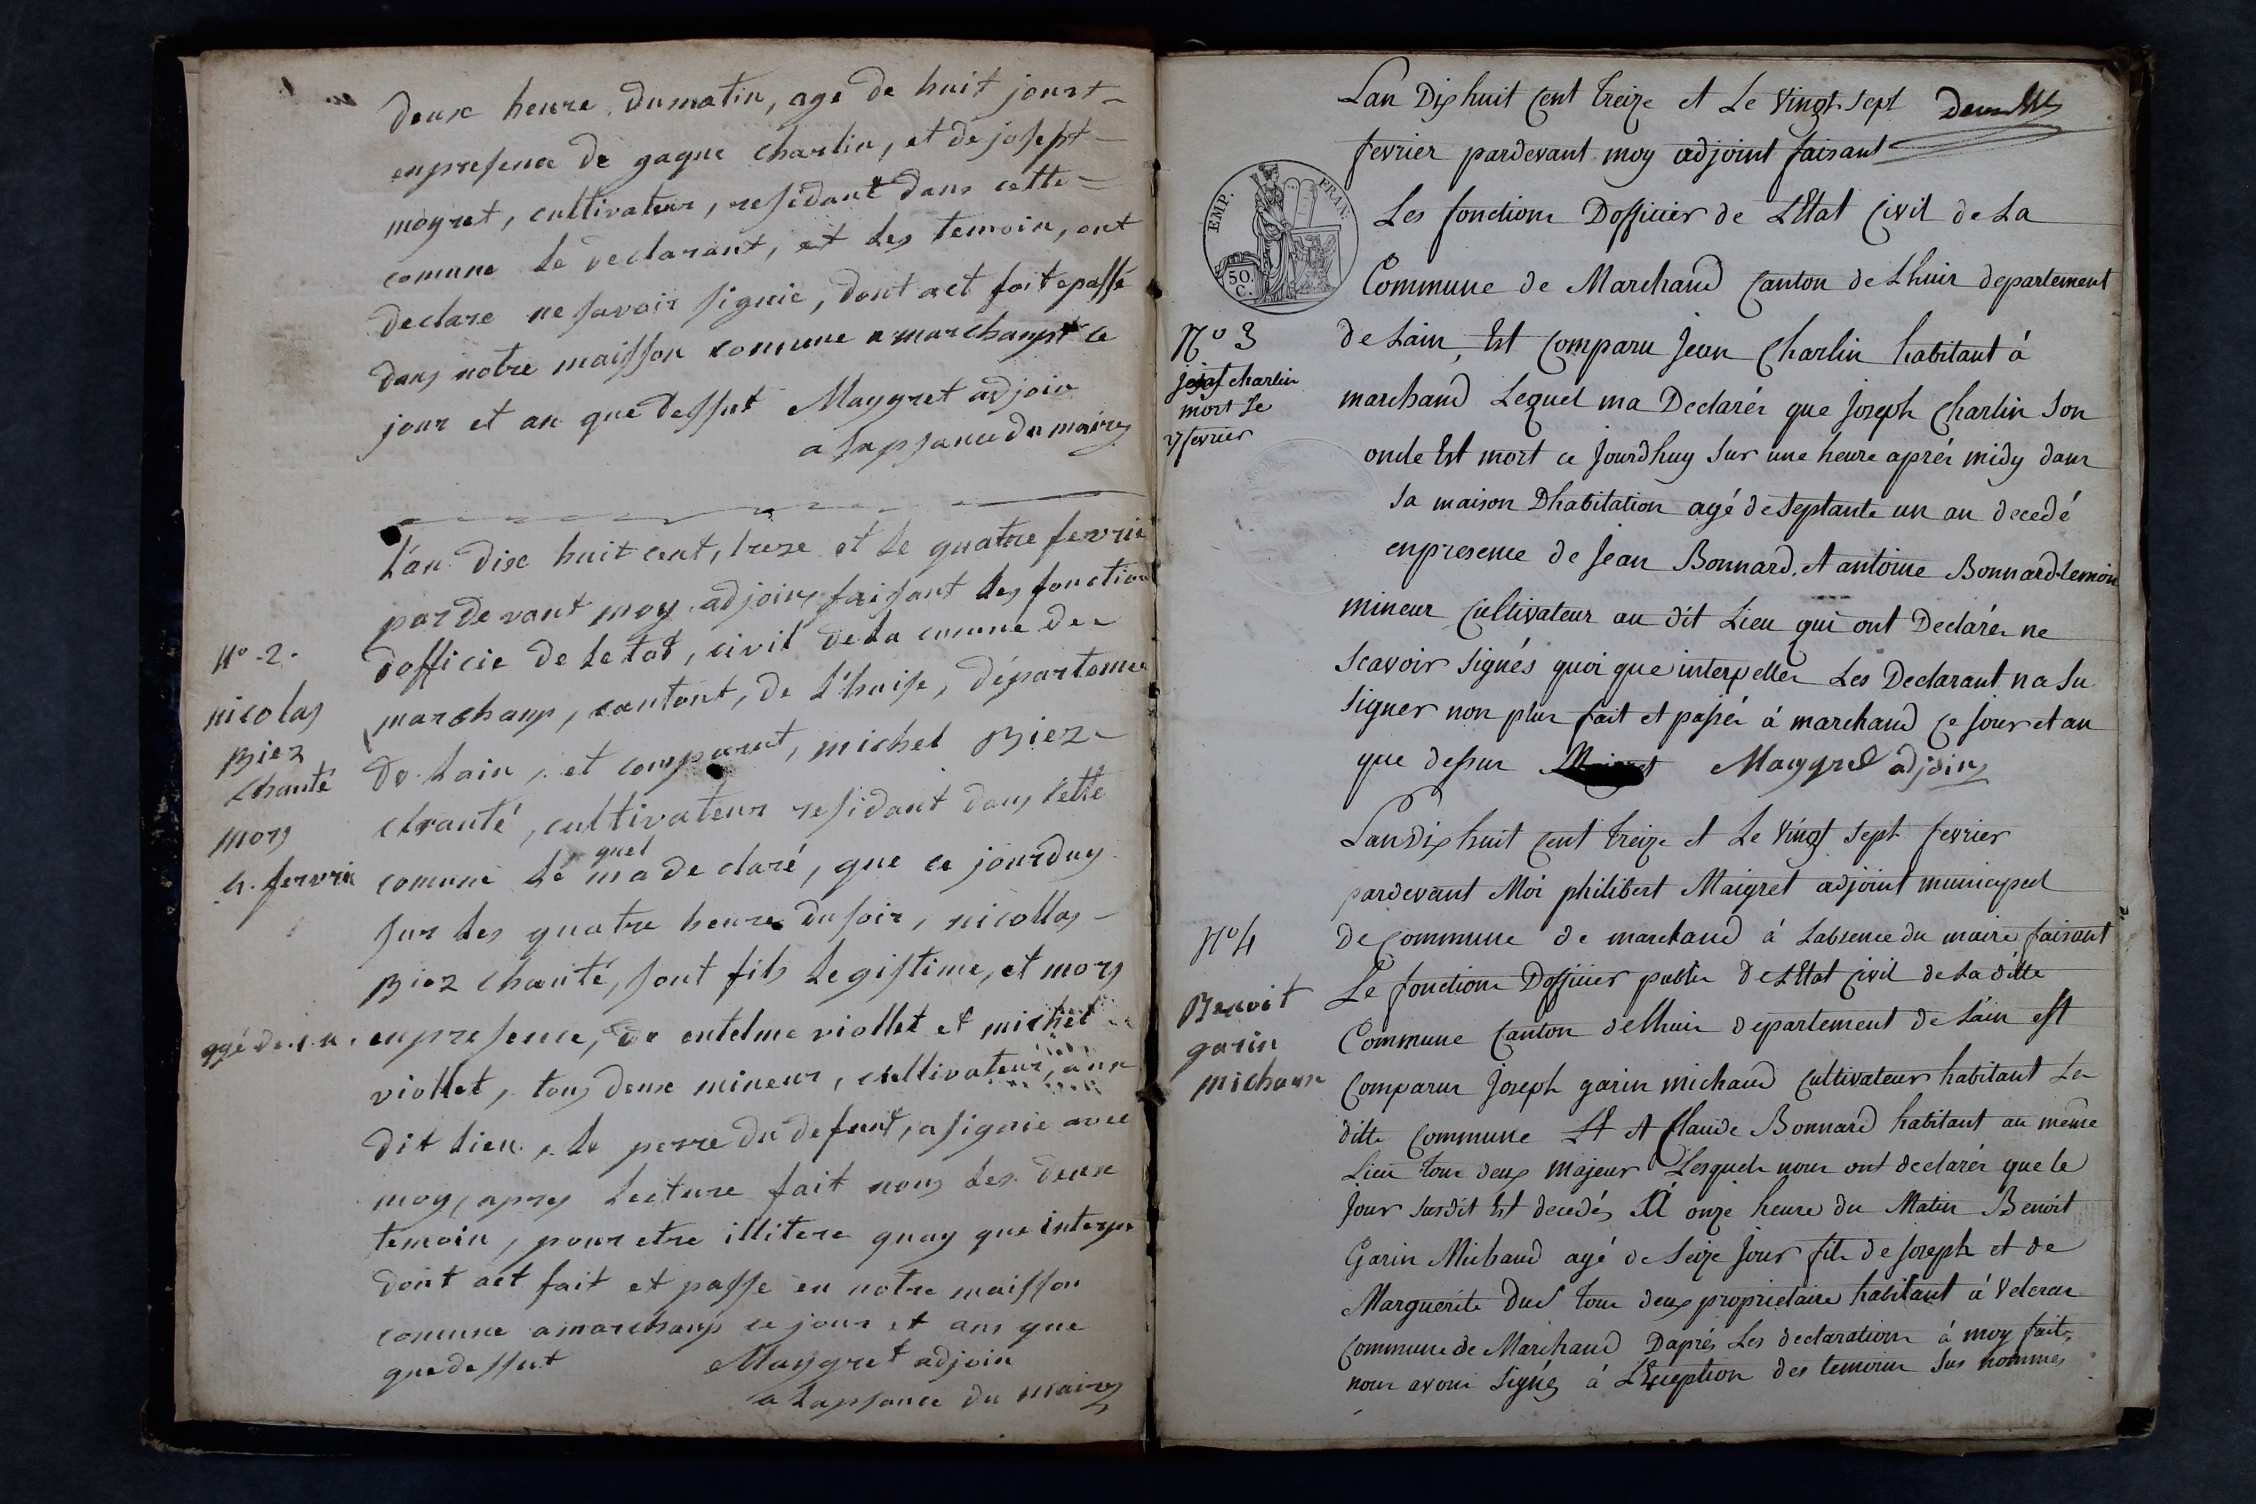 deuxe heure dumatin, age de huit jourt
enpresence de gagne charlin, et de josept
moyret, cultivateur, residant dans cette
comune le declarant, et les temoin, ont
declare ne savoir signie, dont act fait epassé
dans notre maisson comune a marchanpt ce
jour et an que dessut Maygret adjoin
a lapsance du maire
L'an dixe huit cent, treze et le quatre fevrie
par devant moy adjoin faisant les fonction
dofficie de letat, civil de la comune de
N° 2.
nicolas
Biez
chanté
mors
4. fervrie
agé de 1. n.
marchanp, cantont, de L'huise, départeme
de Lain, et comparut, michel Biez
chanté, cultivateur residant dans cette
comune le quel ma de claré, que ce jourduy
sur les quatre heure du soir, nicollas
Biez chanté, sont fils legistime, et mors
enpresence, de entelme viollet et michel
viollet, tous deuxe mineur, cultivateur, aux
dit lieu, le perre du defunt, a signie avec
moy, apres lecture fait nous les deux
temoin, pour etre illitere quoy que interpe
dont act fait et passe en notre maisson
comune a marchanp ce jour et ans que
que dessut Maygret adjoin
a lapsance du maire
Lan Dix huit Cent treize et Le Vingt Sept
fevrier pardevant moy adjoint faisant
EMP. FRAN.
50.
C.
Les fonctions Dofficier de LEtat Civil de La
Commune de Marchand Canton de Lhuis departement
N° 3
josef charlin
mort le
27 fevrier
de Lain, Est Comparu Jean Charlin habitant á
marchand Lequel ma Declarér que Joseph Charlin Son
oncle Est mort ce Jourdhuy Sur une heure aprér midy dans
Sa maison Dhabitation agé de Septante un an decedé
enpresence de Jean Bonnard. et antoine Bonnard temoin
mineur Cultivateur au dit Lieu qui ont Declarér ne
Scavoir Signés quoi que interpeller Les Declarant na Su
Signer non plus fait et passér á marchand Ce Jour et an
que dessus Maygret adjoin
Lan Dix huit Cent treize et Le Vingt Sept fevrier
pardevant Moi philibert Maigret adjoint municipal
N° 4
Benoit
garin
michaux
De Commune de marchand á Labsence du maire faisant
Le fonction Dofficier public De LEtat Civil de La ditte
Commune Canton delhuis departement de Lain est
Comparus Joseph garin michaud Cultivateur habitant La
ditte Commune Et Claude Bonnard habitant au même
Lieu tous deux Majeur Lesquels nous ont declarér que le
Jour Susdit Est decedés á onze heure du Matin Benoit
Garin Michaud agé de Seize Jours fils de Joseph et de
Marguerite Duc tous deux proprietaire habitant á Velcrau
Commune de Marchand Daprés Les declaration á moy fait,
nous avons Signés á LException des temoins Sus nommes